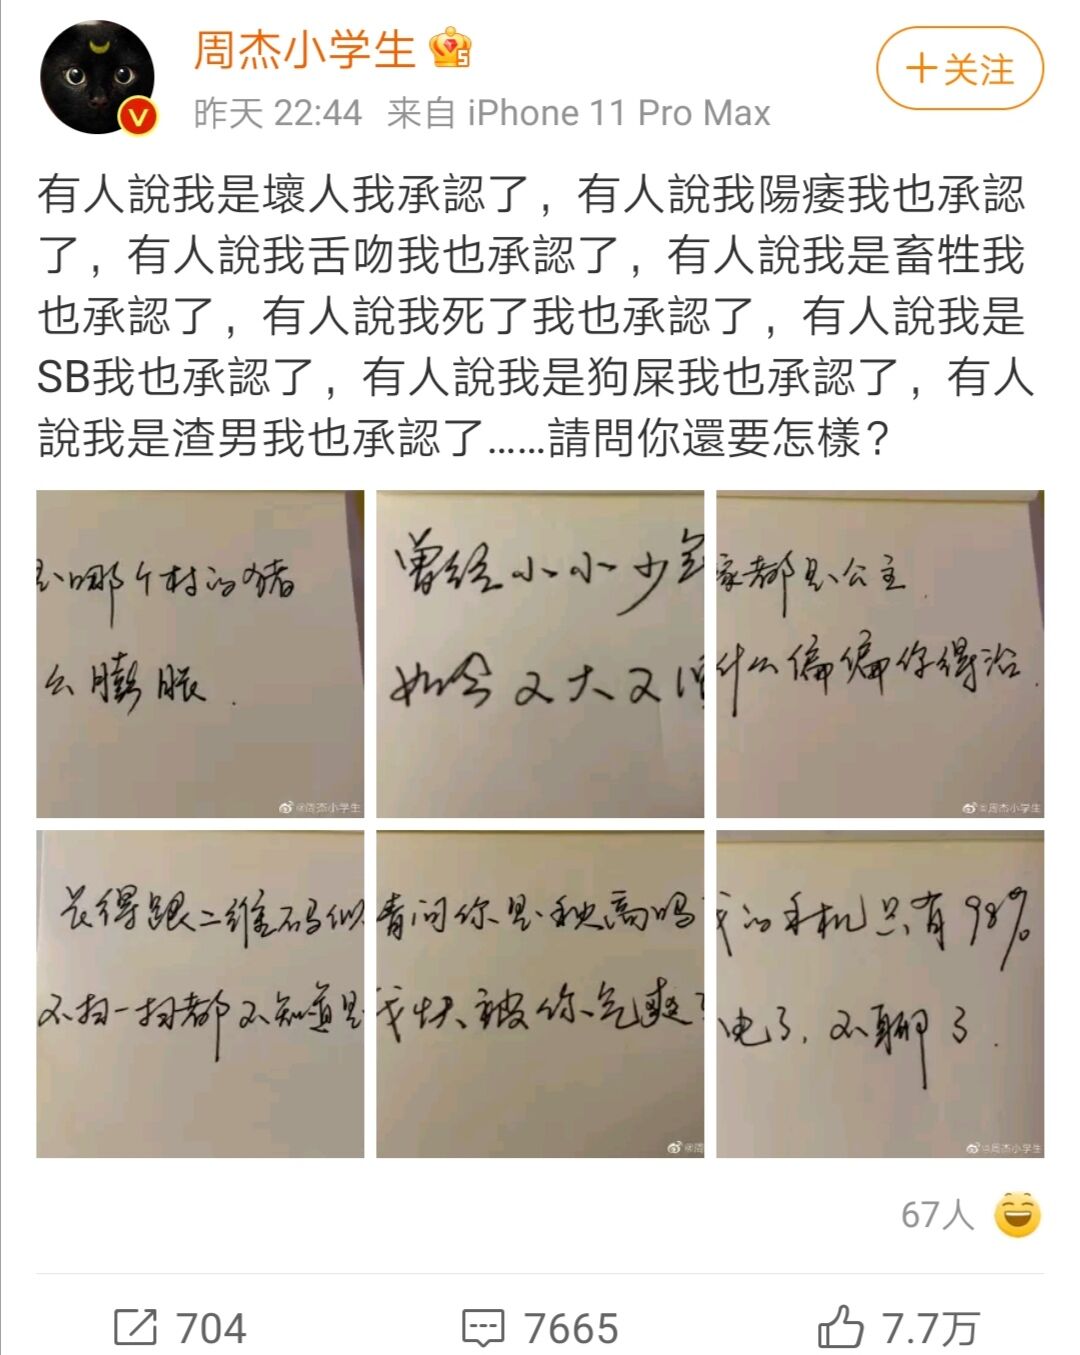 周杰小学生
昨天 22:44 来自 iPhone 11 Pro Max
+关注
有人說我是壞人我承認了，有人說我陽痿我也承認
了，有人說我舌吻我也承認了，有人說我是畜牲我
也承認了，有人說我死了我也承認了，有人說我是
SB我也承認了，有人說我是狗屎我也承認了，有人
說我是渣男我也承認了……請問你還要怎樣？
是哪个村的猪
么膨胀.
@周杰小学生
曾经小小少年
如今又大又
家都是公主.
什么偏偏你得治.
@周杰小学生
长得跟二维码似
不扫一扫都不知道是
请问你是秋高吗
我快被你气爽了
@周
我的手机只有98%
电了,不聊了.
@周杰小学生
67人
704
7665
7.7万